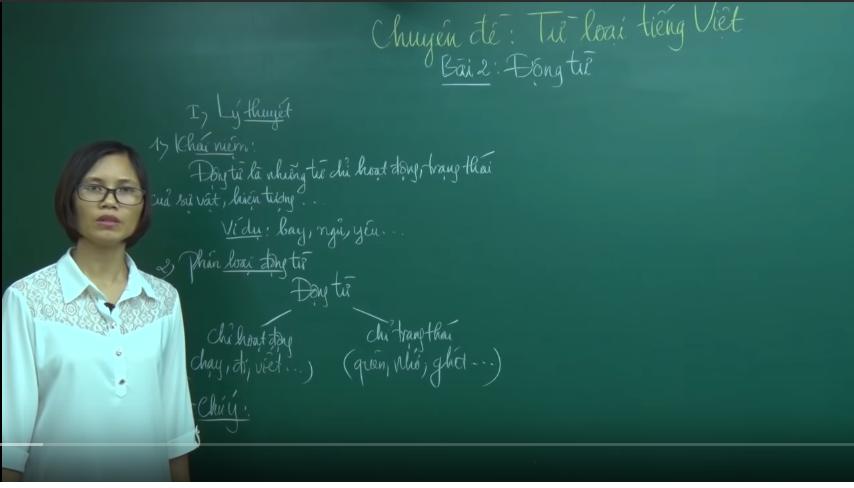 Chuyên đề: Từ loại tiếng Việt
Bài 2: Động từ
I, Lý thuyết
1, Khái niệm:
Động từ là những từ chỉ hoạt động, trạng thái
của sự vật, hiện tượng ...
Ví dụ: bay, ngủ, yêu...
2, Phân loại động từ
Động từ
chỉ hoạt động chỉ trạng thái
chạy, đi, viết...) (quên, nhớ, ghét...)
- Chú ý: